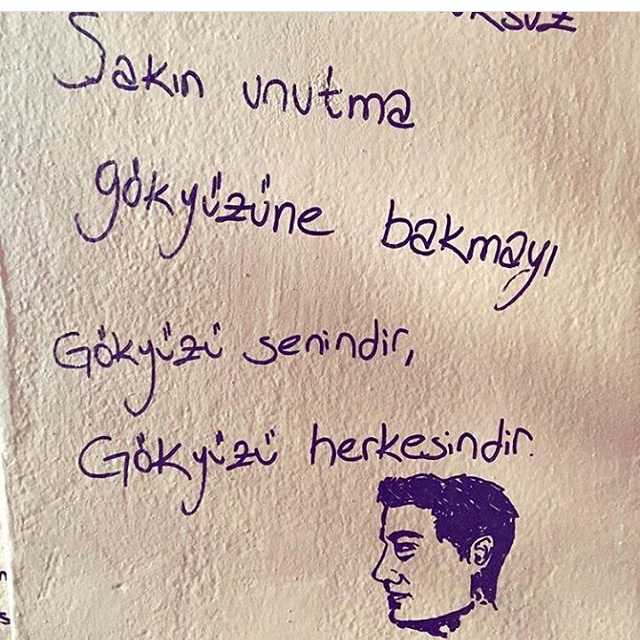 Sakın unutma
gökyüzüne bakmayı
Gökyüzü senindir,
Gökyüzü herkesindir.